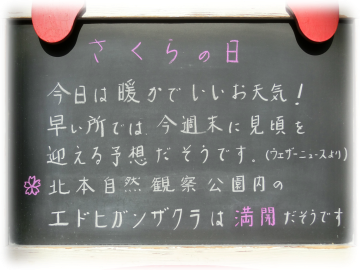 さくらの日
今日は暖かでいいお天気！
早い所では今週末に見頃を
迎える予想だそうです。(ウェザーニュースより)
北本自然観察公園内の
エドヒガンザクラは満開だそうです